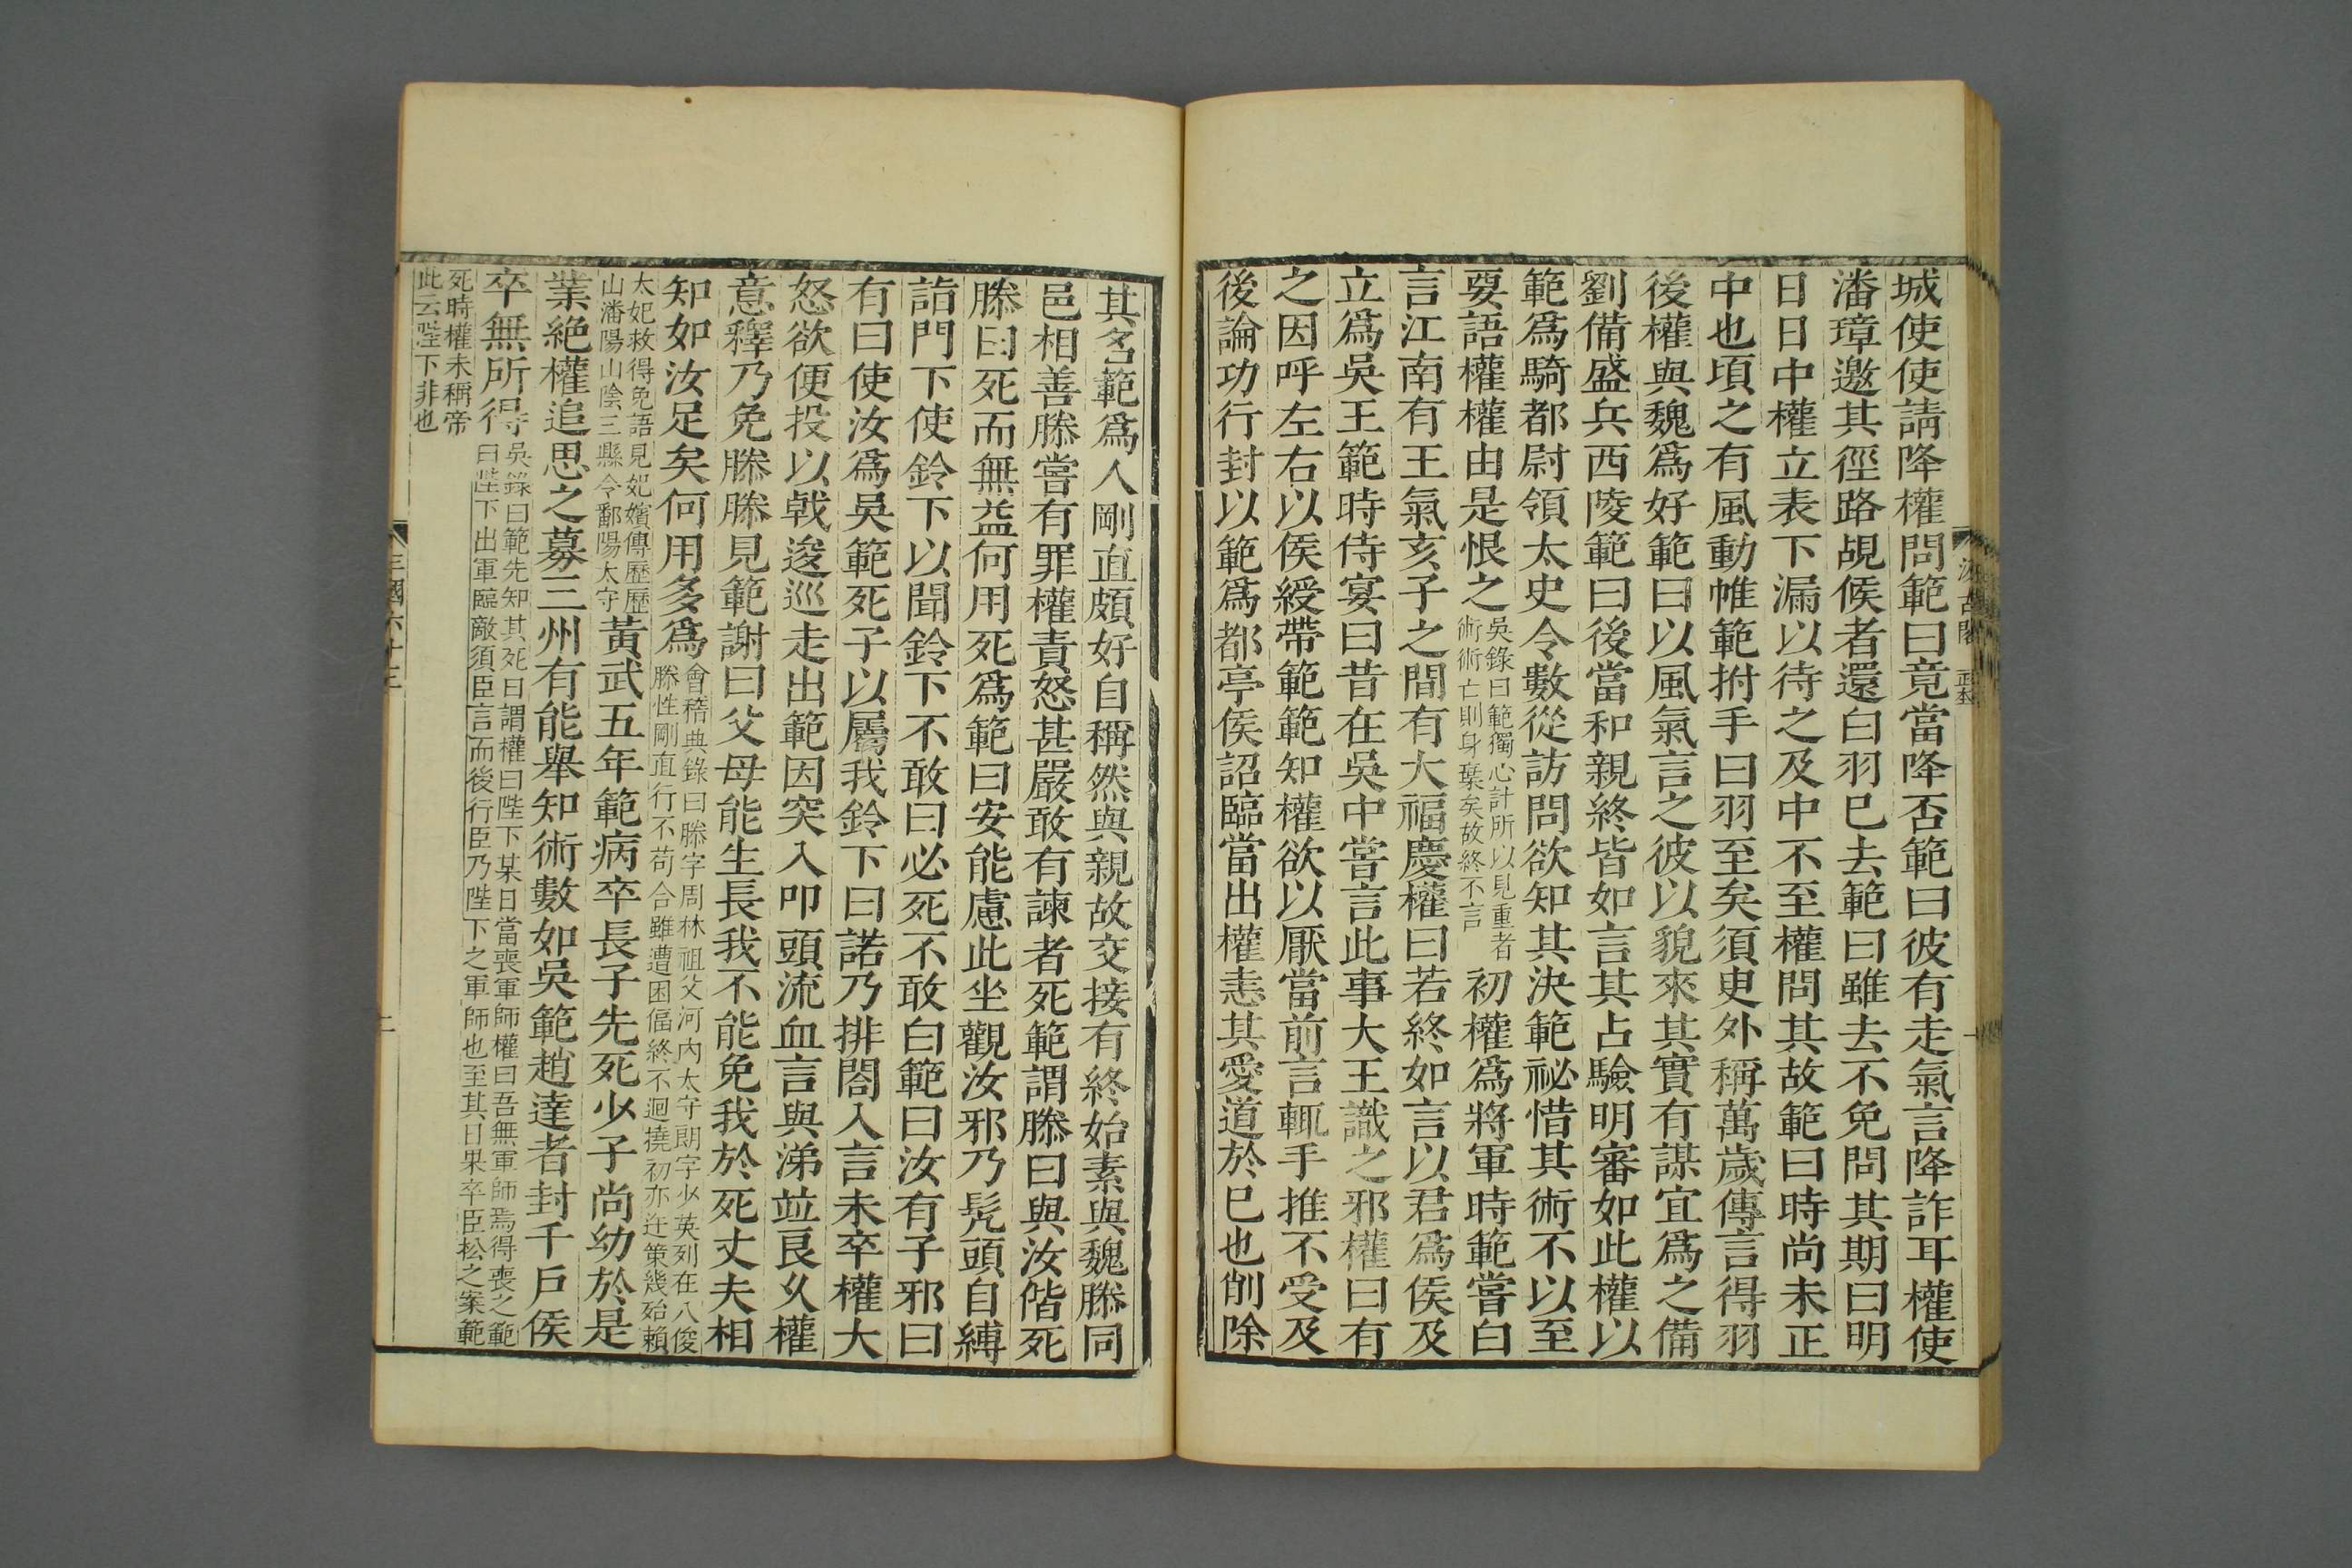 城使使請降權問範曰竟當降否範曰彼有走氣言降詐耳權使
潘璋邀其徑路覘候者還白羽已去範曰雖去不免問其期曰明
日日中權立表下漏以待之及中不至權問其故範曰時尚未正
中也頃之有風動帷範拊手曰羽至矣須臾外稱萬歲傳言得羽
後權與魏爲好範曰以風氣言之彼以貌來其實有謀宜爲之備
劉備盛兵西陵範曰後當和親終皆如言其占驗明審如此權以
範爲騎都尉領太史令數從訪問欲知其決範祕惜其術不以至
要語權權由是恨之
吳錄曰範獨心計所以見重者
術術亡則身棄矣故終不言
初權爲將軍時範嘗白
言江南有王氣亥子之間有大福慶權曰若終如言以君爲侯及
立爲吳王範時侍宴曰昔在吳中嘗言此事大王識之邪權曰有
之因呼左右以侯綬帶範範知權欲以厭當前言輒手推不受及
後論功行封以範爲都亭侯詔臨當出權恚其愛道於已也削除
其名範爲人剛直頗好自稱然與親故交接有終始素與魏滕同
邑相善滕嘗有罪權責怒甚嚴敢有諫者死範謂滕曰與汝偕死
滕曰死而無益何用死爲範曰安能慮此坐觀汝邪乃髡頭自縛
詣門下使鈴下以聞鈴下不敢曰必死不敢白範曰汝有子邪曰
有曰使汝爲吳範死子以屬我鈴下曰諾乃排閤入言未卒權大
怒欲便投以戟逡巡走出範因突入叩頭流血言與涕竝良久權
意釋乃免滕滕見範謝曰父母能生長我不能免我於死丈夫相
知如汝足矣何用多爲
會稽典錄曰滕字周林祖父河內太守朗字少英列在八俊
滕性剛直行不苟合雖遭困偪終不迴撓初亦迕策幾殆賴
太妃救得免語見妃嬪傳歷歷
山潘陽山陰三縣令鄱陽太守
黃武五年範病卒長子先死少子尚幼於是
業絕權追思之募三州有能舉知術數如吳範趙達者封千戶侯
卒無所得
吳錄曰範先知其死日謂權曰陛下某日當喪軍師權曰吾無軍師焉得喪之範
曰陛下出軍臨敵須臣言而後行臣乃陛下之軍師也至其日果卒臣松之案範
死時權未稱帝
此云陛下非也
三國六十三